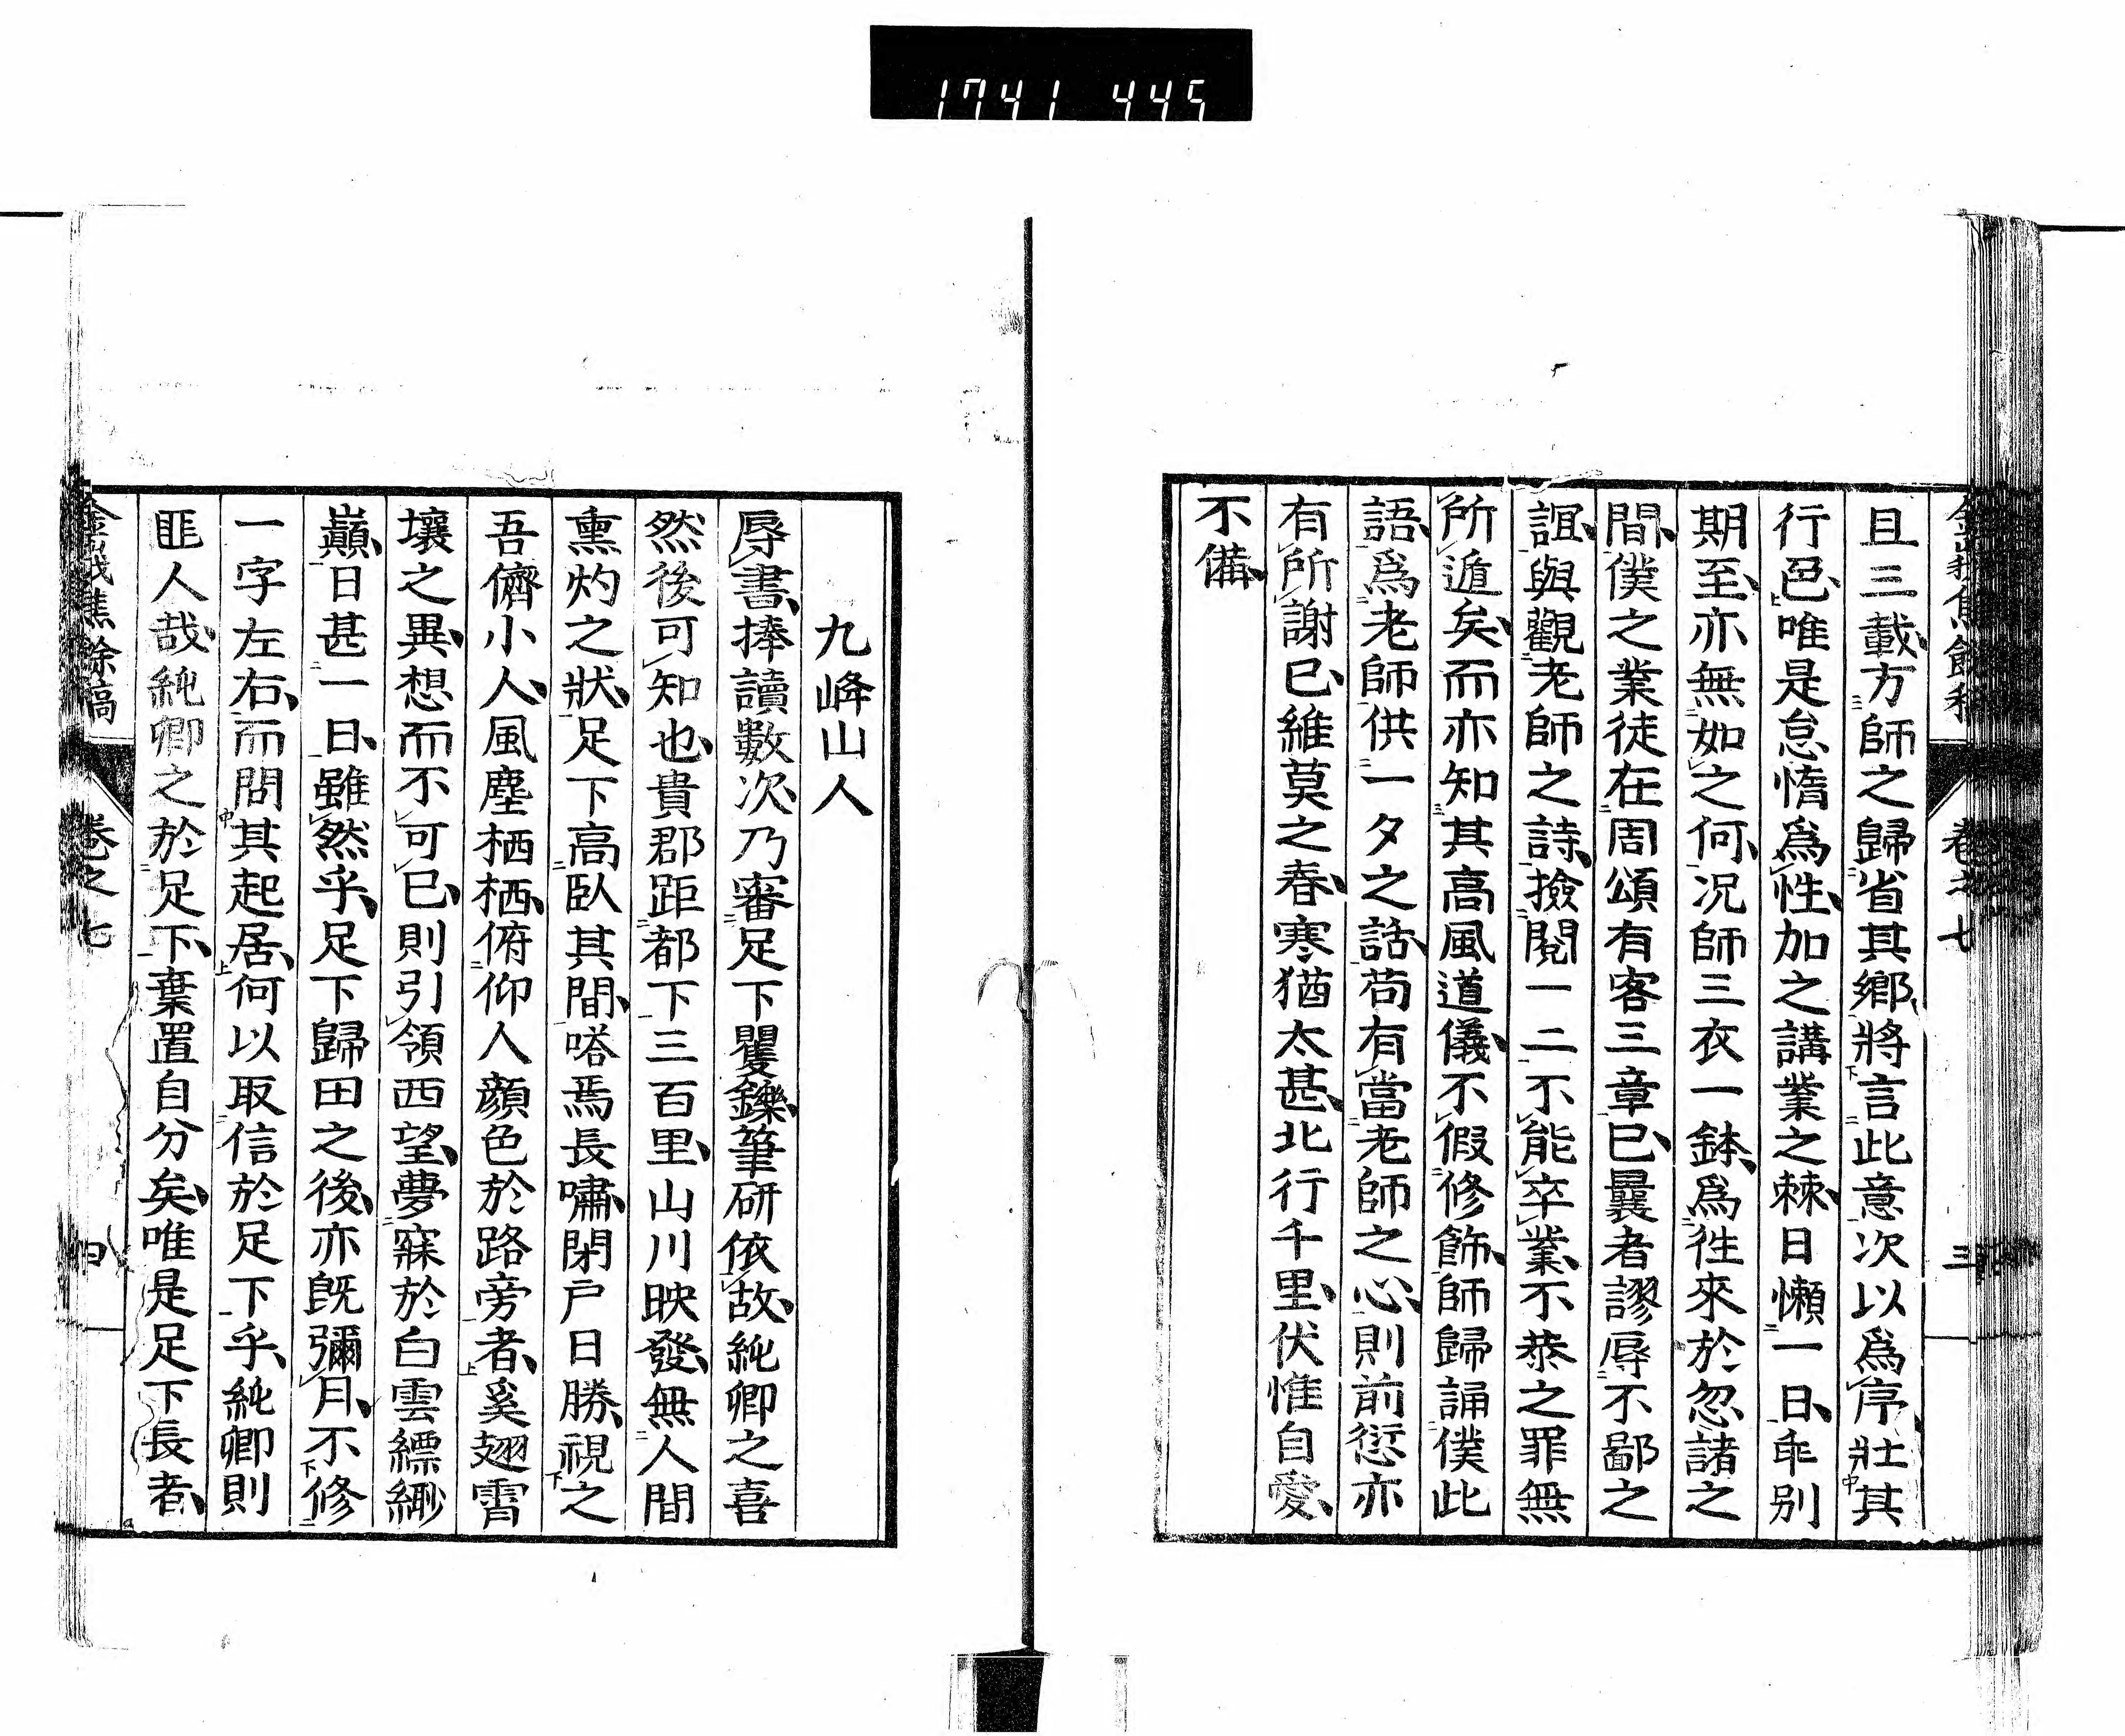 1741 445
且三載方師之歸省其鄉將言此意次以為序壯其
行邑唯是怠惰為性加之講業之棘日懶一日乖別
期至亦無如之何况師三衣一鉢為徃來於忽諸之
間僕之業徒在周頌有客三章已曩者謬辱不鄙之
誼與觀老師之詩撿閱一二不能卒業不恭之罪無
所遁矣而亦知其高風道儀不假修飾師歸誦僕此
語為老師供一夕之話苟有當老師之心則前愆亦
有所謝已維莫之春寒猶太甚北行千里伏惟自愛
不備
卷之七
三
九峰山人
辱書捧讀數次乃審足下矍鑠筆研依故純卿之喜
然後可知也貴郡距都下三百里山川映發無人間
熏灼之狀足下高臥其間嗒焉長嘯閉戶日勝視之
吾儕小人風塵栖栖俯仰人顏色於路旁者奚翅霄
壤之異想而不可已則引領西望夢寐於白雲縹緲
巔日甚一日雖然乎足下歸田之後亦既彌月不修
一字左右而問其起居何以取信於足下乎純卿則
匪人哉純卿之於足下棄置自分矣唯是足下長者
金峨焦餘稿
卷之七
四